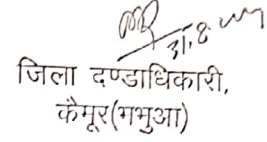 31.8.
जिला दण्डाधिकारी,
कैमूर(मभुआ)